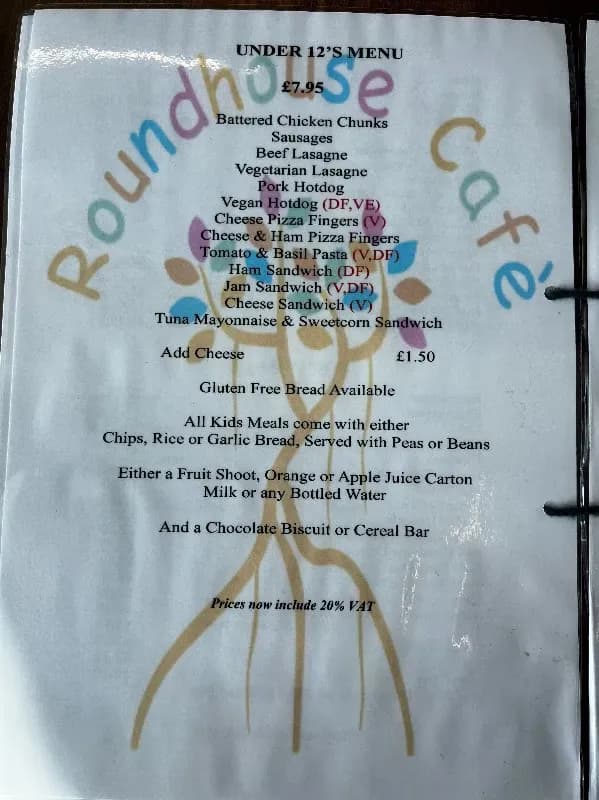 Roundhouse Cafè
UNDER 12'S MENU
£7.95
Battered Chicken Chunks
Sausages
Beef Lasagne
Vegetarian Lasagne
Pork Hotdog
Vegan Hotdog (DF,VE)
Cheese Pizza Fingers (V)
Cheese & Ham Pizza Fingers
Tomato & Basil Pasta (V,DF)
Ham Sandwich (DF)
Jam Sandwich (V,DF)
Cheese Sandwich (V)
Tuna Mayonnaise & Sweetcorn Sandwich
Add Cheese £1.50
Gluten Free Bread Available
All Kids Meals come with either
Chips, Rice or Garlic Bread, Served with Peas or Beans
Either a Fruit Shoot, Orange or Apple Juice Carton
Milk or any Bottled Water
And a Chocolate Biscuit or Cereal Bar
Prices now include 20% VAT